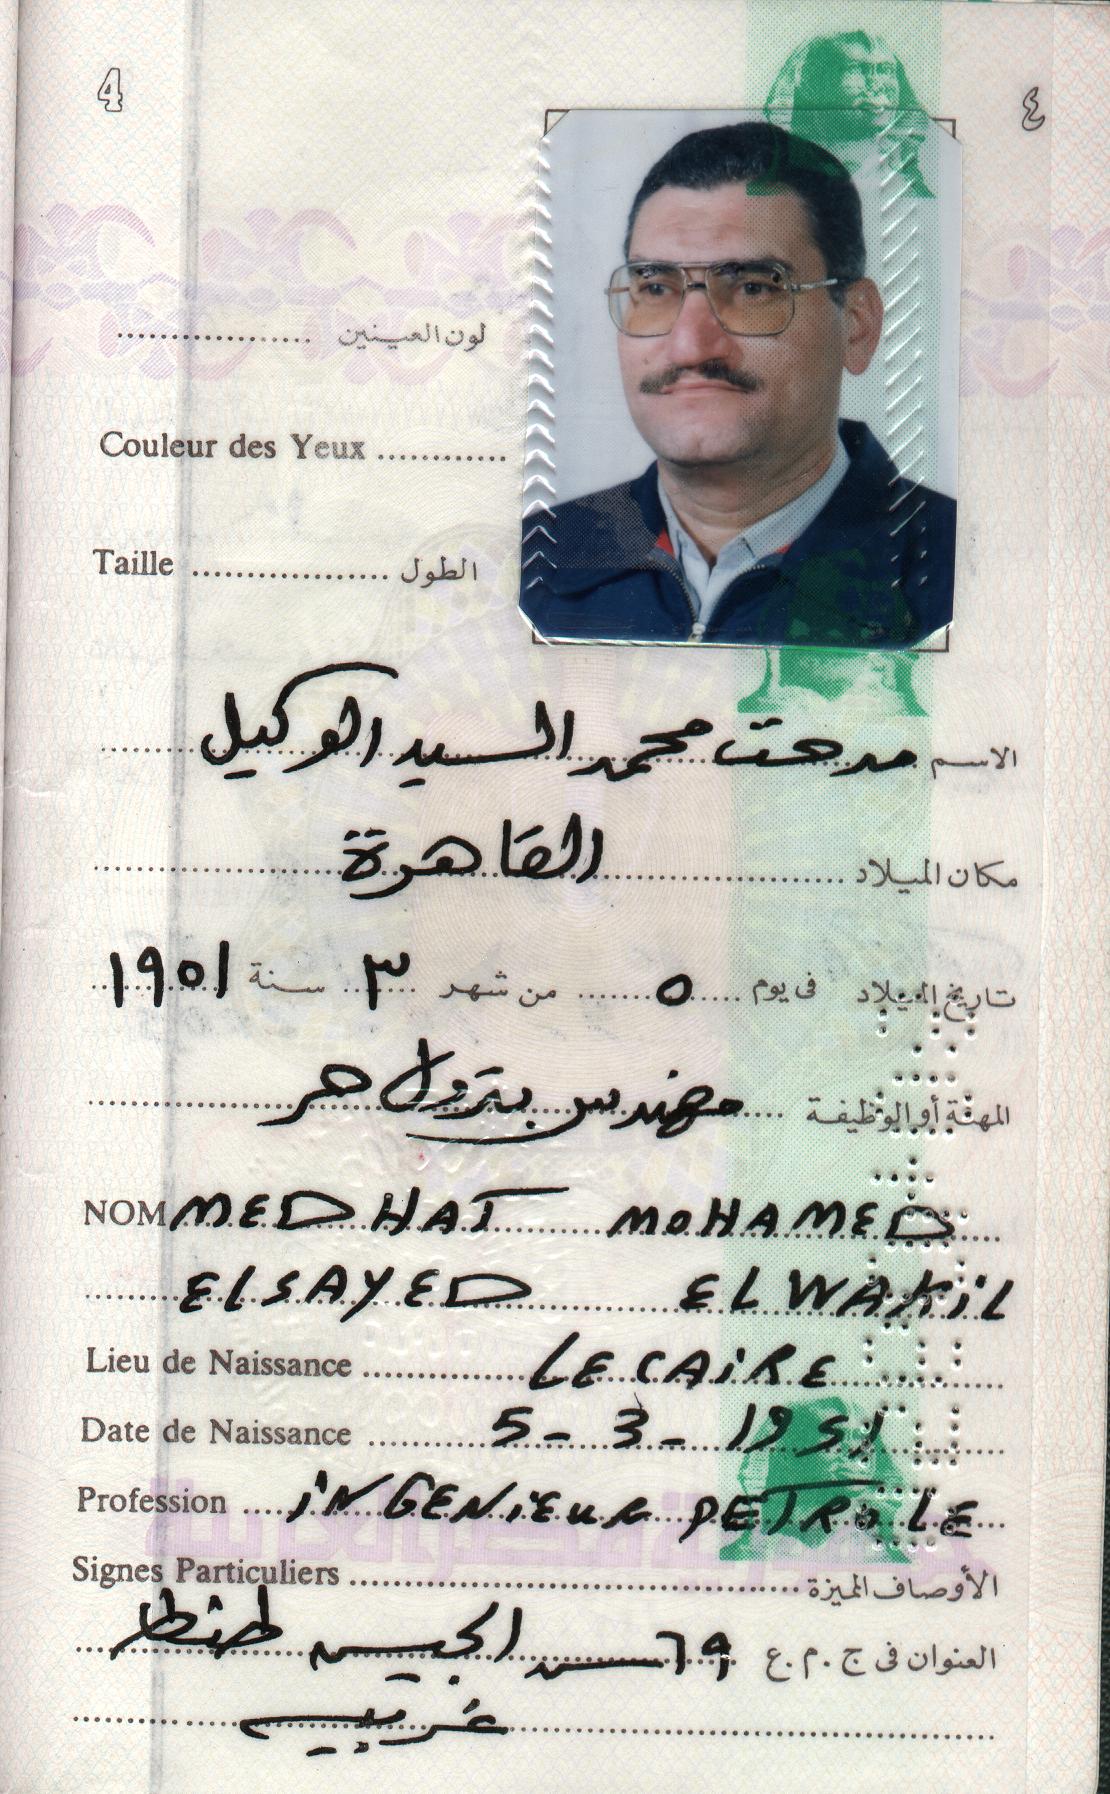 4 ٤
لون العينين
Couleur des Yeux
Taille الطول
الاسم مدحت محمد السيد الوكيل
مكان الميلاد القاهرة
تاريخ الميلاد فى يوم ٥ من شهر ٣ سنة ١٩٥١
المهنة أو الوظيفة مهندس بترول حر
NOM MEDHAT MOHAMED
ELSAYED ELWAKiL
Lieu de Naissance LE CAiRE
Date de Naissance 5 - 3 - 1951
Profession iNGENiEUR PETROLE
Signes Particuliers الأوصاف المميزة
العنوان فى ج . م . ع ٦٩ ش الجيش طنطا
غربية